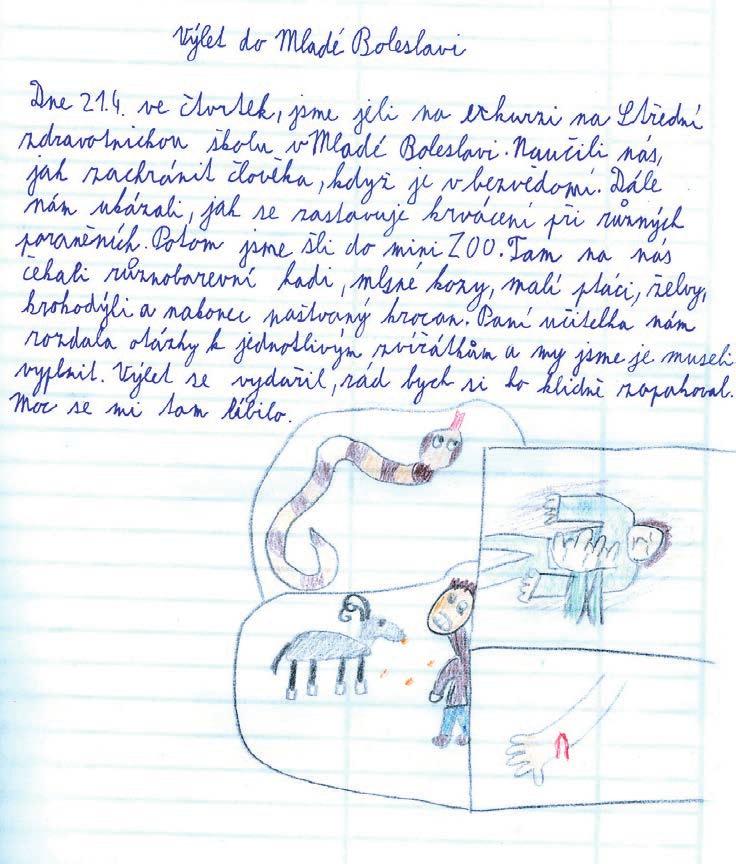 Výlet do Mladé Boleslavi
Dne 21.4. ve čtvrtek, jsme jeli na exkurzi na Střední
zdravotnickou školu v Mladé Boleslavi. Naučili nás,
jak zachránit člověka, když je v bezvědomí. Dále
nám ukázali, jak se zastavuje krvácení při různých
poraněních. Potom jsme šli do mini ZOO. Tam na nás
čekali různobarevní hadi, mlsné kozy, malí ptáci, želvy,
krokodýli a nakonec naštvaný krocan. Paní učitelka nám
rozdala otázky k jednotlivým zvířátkům a my jsme je museli
vyplnit. Výlet se vydařil, rád bych si ho klidně zopakoval.
Moc se mi tam líbilo.